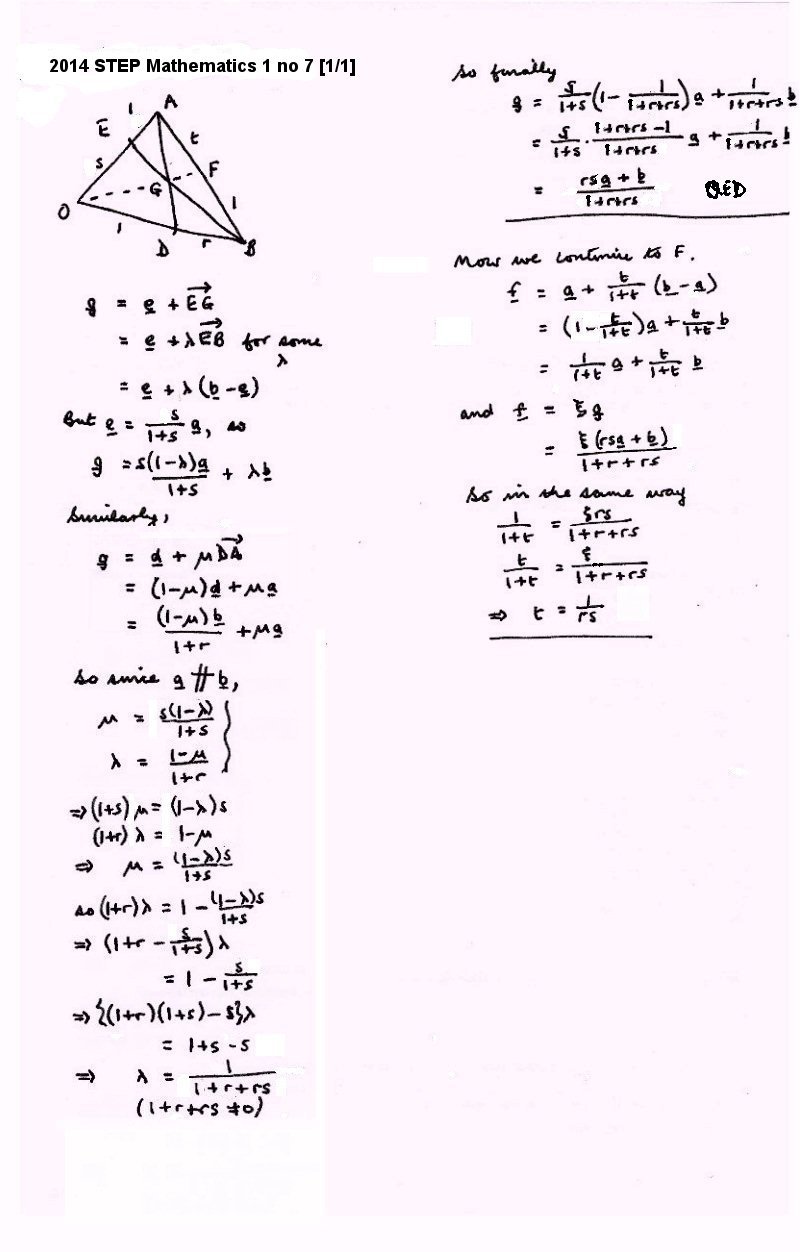 2014 STEP Mathematics 1 no 7 [1/1]
1 A
E t
s F
G
O 1
1
D r B
g = e + EG→
= e + λEB→ for some
λ
= e + λ(b - e)
But e = s/(1+s) a, so
g = s(1-λ)a/(1+s) + λb
Similarly,
g = d + μDA→
= (1-μ)d + μa
= (1-μ)b/(1+r) + μa
So since a ∦ b,
μ = s(1-λ)/(1+s) }
λ = (1-μ)/(1+r)
⇒ (1+s)μ = (1-λ)s
(1+r)λ = 1-μ
⇒ μ = (1-λ)s/(1+s)
so (1+r)λ = 1 - (1-λ)s/(1+s)
⇒ (1+r - s/(1+s))λ
= 1 - s/(1+s)
⇒ {(1+r)(1+s) - s}λ
= 1+s - s
⇒ λ = 1/(1+r+rs)
(1+r+rs ≠ 0)
So finally
g = s/(1+s) (1 - 1/(1+r+rs)) a + 1/(1+r+rs) b
= s/(1+s) · (1+r+rs - 1)/(1+r+rs) a + 1/(1+r+rs) b
= (rsa + b)/(1+r+rs) QED
Now we continue to F.
f = a + t/(1+t) (b - a)
= (1 - t/(1+t))a + t/(1+t) b
= 1/(1+t) a + t/(1+t) b
and f = ξg
= ξ(rsa + b)/(1+r+rs)
So in the same way
1/(1+t) = ξrs/(1+r+rs)
t/(1+t) = ξ/(1+r+rs)
⇒ t = 1/rs